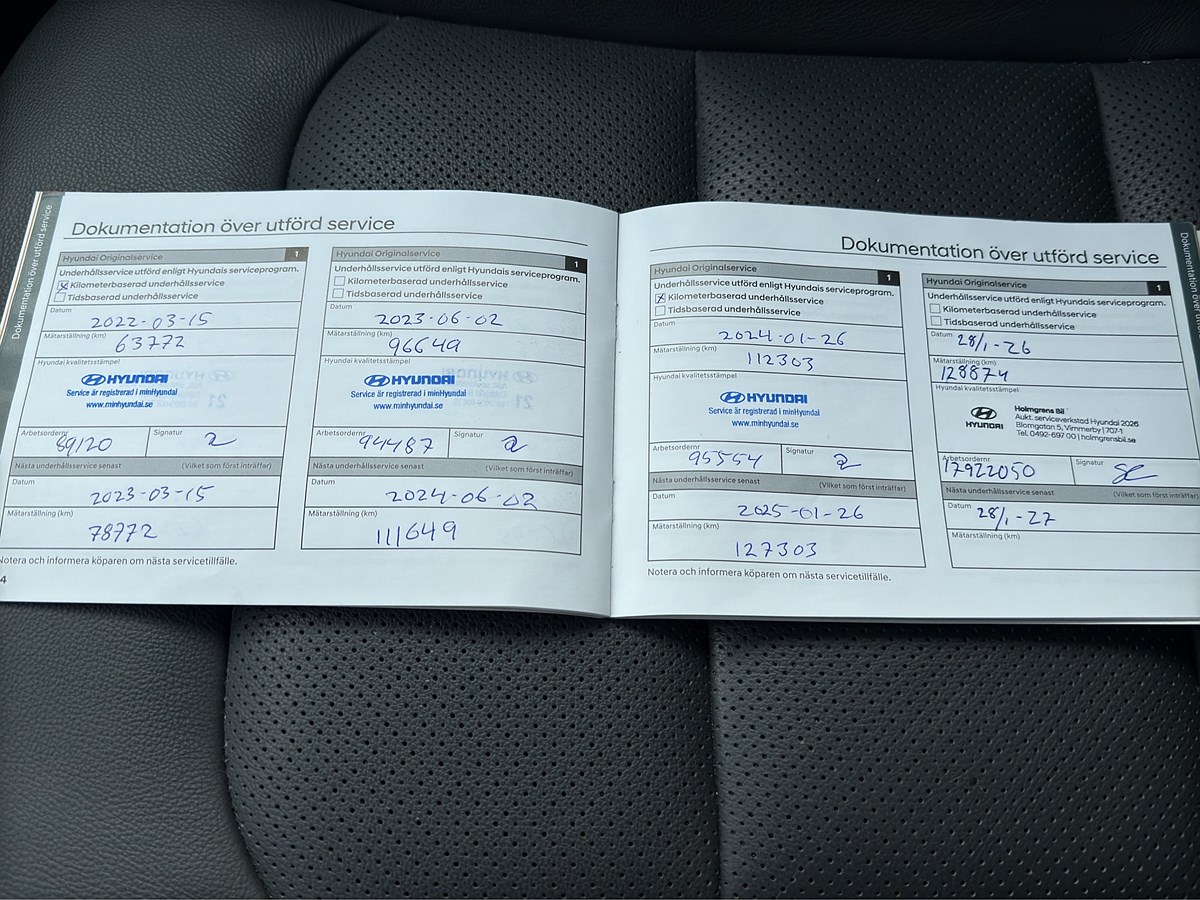 Dokumentation över utförd service
Dokumentation över utförd service
Hyundai Originalservice 1
Underhållsservice utförd enligt Hyundais serviceprogram.
Kilometerbaserad underhållsservice
Tidsbaserad underhållsservice
Datum
2022-03-15
Mätarställning (km)
63772
Hyundai kvalitetsstämpel
HYUNDAI
Service är registrerad i minHyundai
www.minhyundai.se
Arbetsordernr Signatur
89120
Nästa underhållsservice senast (Vilket som först inträffar)
Datum
2023-03-15
Mätarställning (km)
78772
Notera och informera köparen om nästa servicetillfälle.
4
Hyundai Originalservice 1
Underhållsservice utförd enligt Hyundais serviceprogram.
Kilometerbaserad underhållsservice
Tidsbaserad underhållsservice
Datum
2023-06-02
Mätarställning (km)
96649
Hyundai kvalitetsstämpel
HYUNDAI
Service är registrerad i minHyundai
www.minhyundai.se
Arbetsordernr Signatur
94487
Nästa underhållsservice senast (Vilket som först inträffar)
Datum
2024-06-02
Mätarställning (km)
111649
Dokumentation över utförd service
Hyundai Originalservice 1
Underhållsservice utförd enligt Hyundais serviceprogram.
Kilometerbaserad underhållsservice
Tidsbaserad underhållsservice
Datum
2024-01-26
Mätarställning (km)
112303
Hyundai kvalitetsstämpel
HYUNDAI
Service är registrerad i minHyundai
www.minhyundai.se
Arbetsordernr Signatur
95554
Nästa underhållsservice senast (Vilket som först inträffar)
Datum
2025-01-26
Mätarställning (km)
127303
Notera och informera köparen om nästa servicetillfälle.
Hyundai Originalservice 1
Underhållsservice utförd enligt Hyundais serviceprogram.
Kilometerbaserad underhållsservice
Tidsbaserad underhållsservice
Datum 28/1-26
Mätarställning (km)
128874
Hyundai kvalitetsstämpel
HYUNDAI
Holmgrens Bil
Aukt. serviceverkstad Hyundai 2026
Blomgatan 5, Vimmerby | 707-1
Tel. 0492-697 00 | holmgrensbil.se
Arbetsordernr Signatur
17922050
Nästa underhållsservice senast (Vilket som först inträffar)
Datum 28/1-27
Mätarställning (km)
Dokumentation över